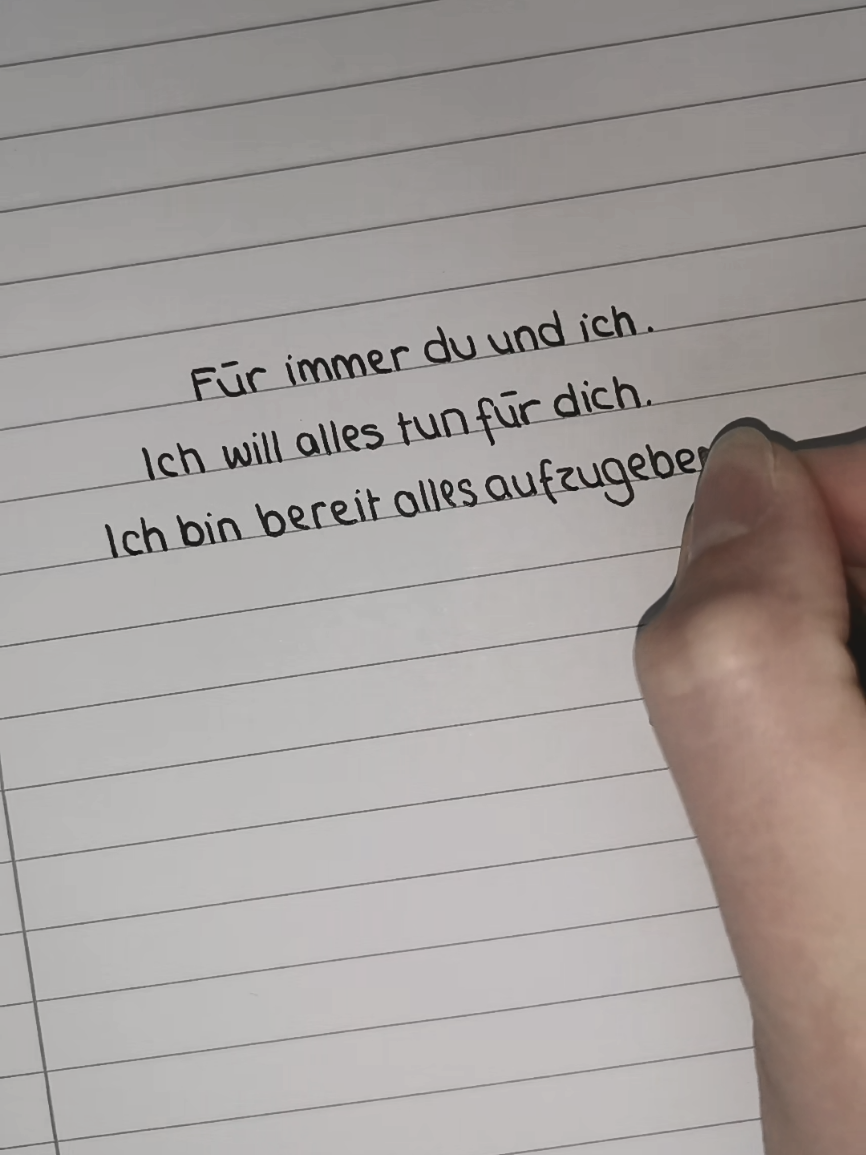 Für immer du und ich.
Ich will alles tun für dich.
Ich bin bereit alles aufzugeben